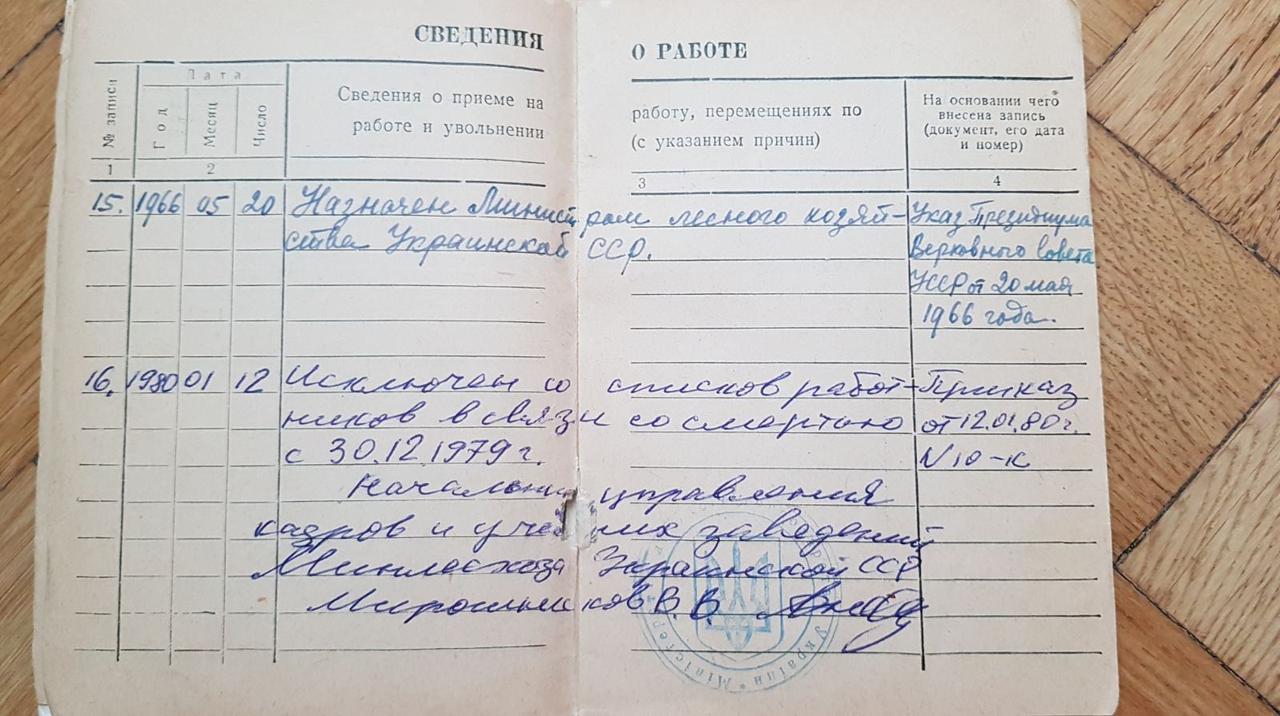 СВЕДЕНИЯ О РАБОТЕ
№ записи
Дата
Год
Месяц
Число
Сведения о приеме на работу, перемещениях по
работе и увольнении (с указанием причин)
На основании чего
внесена запись
(документ, его дата
и номер)
1 2 3 4
15. 1966 05 20 Назначен Министром лесного хозяй- Указ Президиума
ства Украинской ССР. Верховного совета
УССР от 20 мая
1966 года.
16. 1980 01 12 Исключен со списков работ- Приказ
ников в связи со смертью от 12.01.80г.
с 30.12.1979 г. N10-к
Начальник управления
кадров и учебных заведений
Минлесхоза Украинской ССР
Мирошников В.В.
України • Міністер